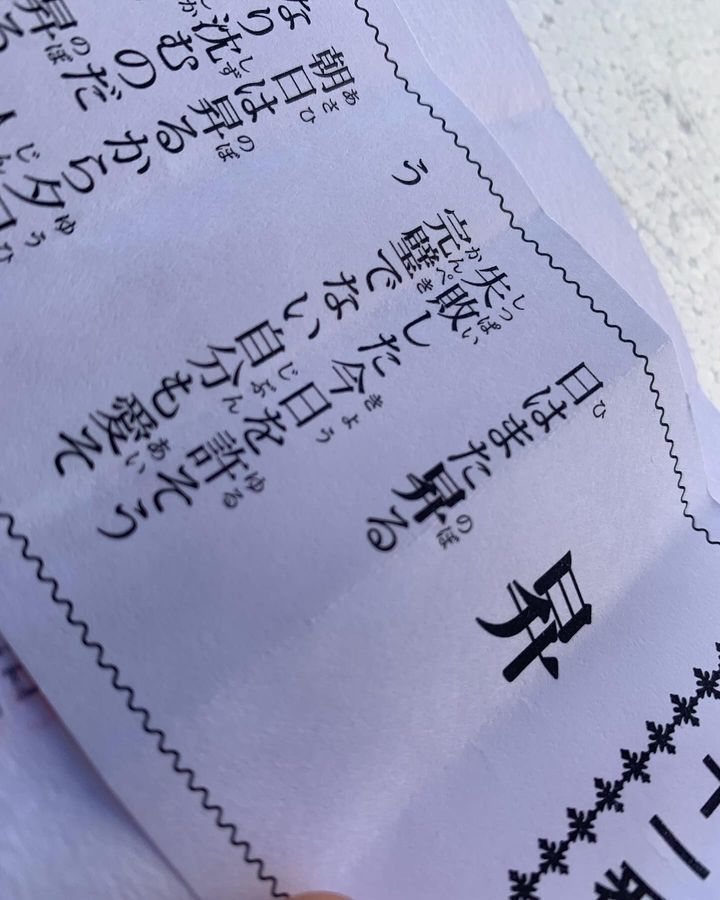 十二
昇
日はまた昇る
失敗した今日を許そう
完璧でない自分も愛そ
う
朝日は昇るから夕日
なり沈むのだ
昇る